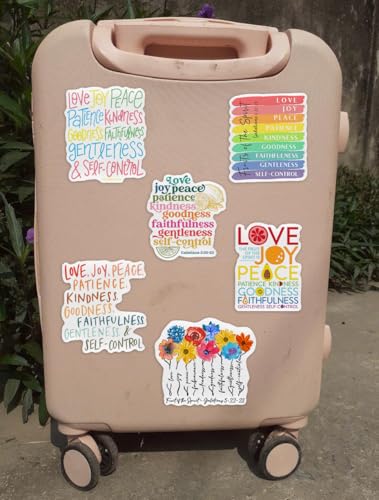 LOVE JOY PEACE
PATIENCE KINDNESS
GOODNESS FAITHFULNESS
gentleness
& SELF-CONTROL
Fruits of the Spirit
LOVE
JOY
PEACE
PATIENCE
KINDNESS
GOODNESS
FAITHFULNESS
GENTLENESS
SELF-CONTROL
Love
joy peace
patience
kindness
goodness
faithfulness
gentleness
self-control
Galatians 5:22-23
LOVE
THE FRUIT OF THE SPIRIT IS
JOY
PEACE
PATIENCE KINDNESS
GOODNESS
FAITHFULNESS
GENTLENESS SELF-CONTROL
LOVE, JOY, PEACE,
PATIENCE,
KINDNESS,
GOODNESS,
FAITHFULNESS
GENTLENESS, &
SELF-CONTROL
love
joy
peace
patience
kindness
goodness
faithfulness
gentleness
self-control
Fruit of the Spirit - Galatians 5:22-23